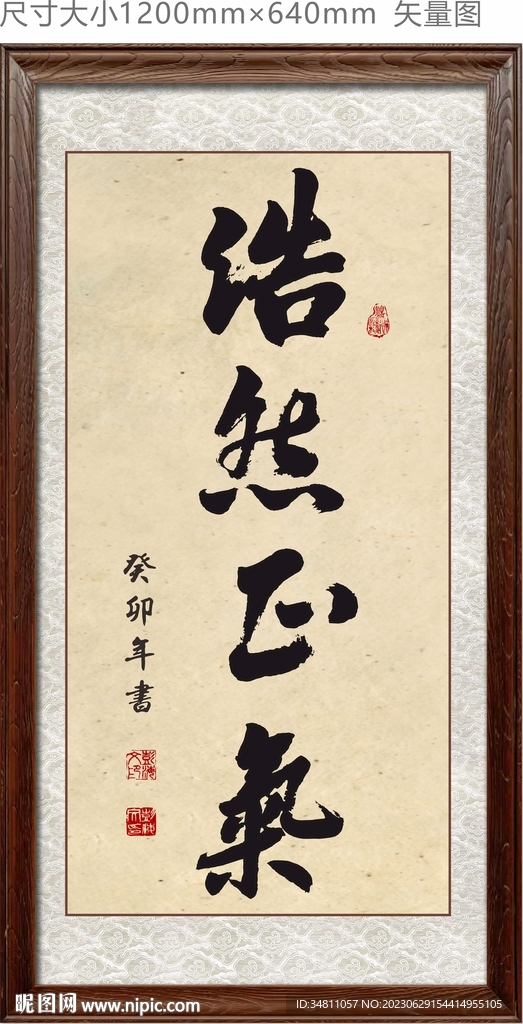 尺寸大小1200mm×640mm 矢量图
浩然正氣
癸卯年書
昵图网 www.nipic.com
ID:34811057 NO:20230629154414955105